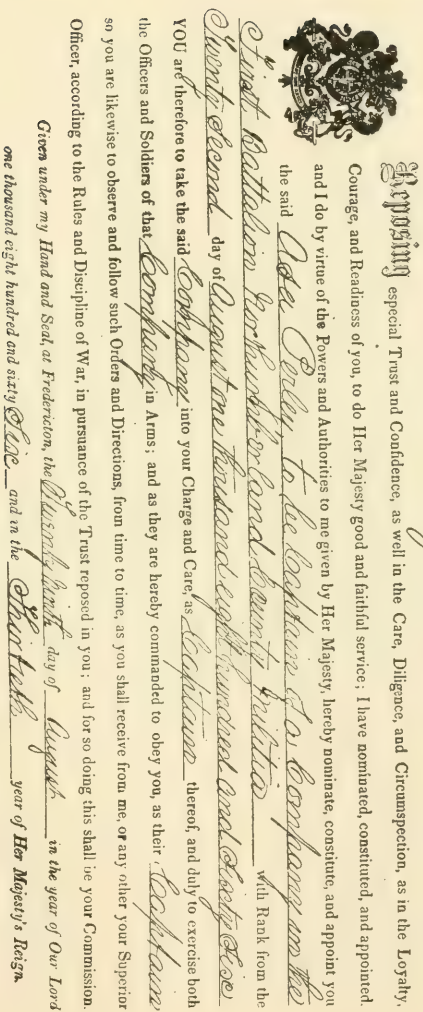 Reposing especial Trust and Confidence, as well in the Care, Diligence, and Circumspection, as in the Loyalty,
Courage, and Readiness of you, to do Her Majesty good and faithful service; I have nominated, constituted, and appointed.
and I do by virtue of the Powers and Authorities to me given by Her Majesty, hereby nominate, constitute, and appoint you
the said Asa Perley to be Captain To Company in the
First Battalion Northumberland County Militia with Rank from the
Twenty Second day of August one thousand eight hundred and Sixty Six
YOU are therefore to take the said Company into your Charge and Care, as Captain thereof, and duly to exercise both
the Officers and Soldiers of that Company in Arms; and as they are hereby commanded to obey you, as their Captain
so you are likewise to observe and follow such Orders and Directions, from time to time, as you shall receive from me, or any other your Superior
Officer, according to the Rules and Discipline of War, in pursuance of the Trust reposed in you; and for so doing this shall be your Commission.
Given under my Hand and Seal, at Fredericton, the Twenty Ninth day of August in the year of Our Lord
one thousand eight hundred and sixty Six and in the Thirtieth year of Her Majesty's Reign.